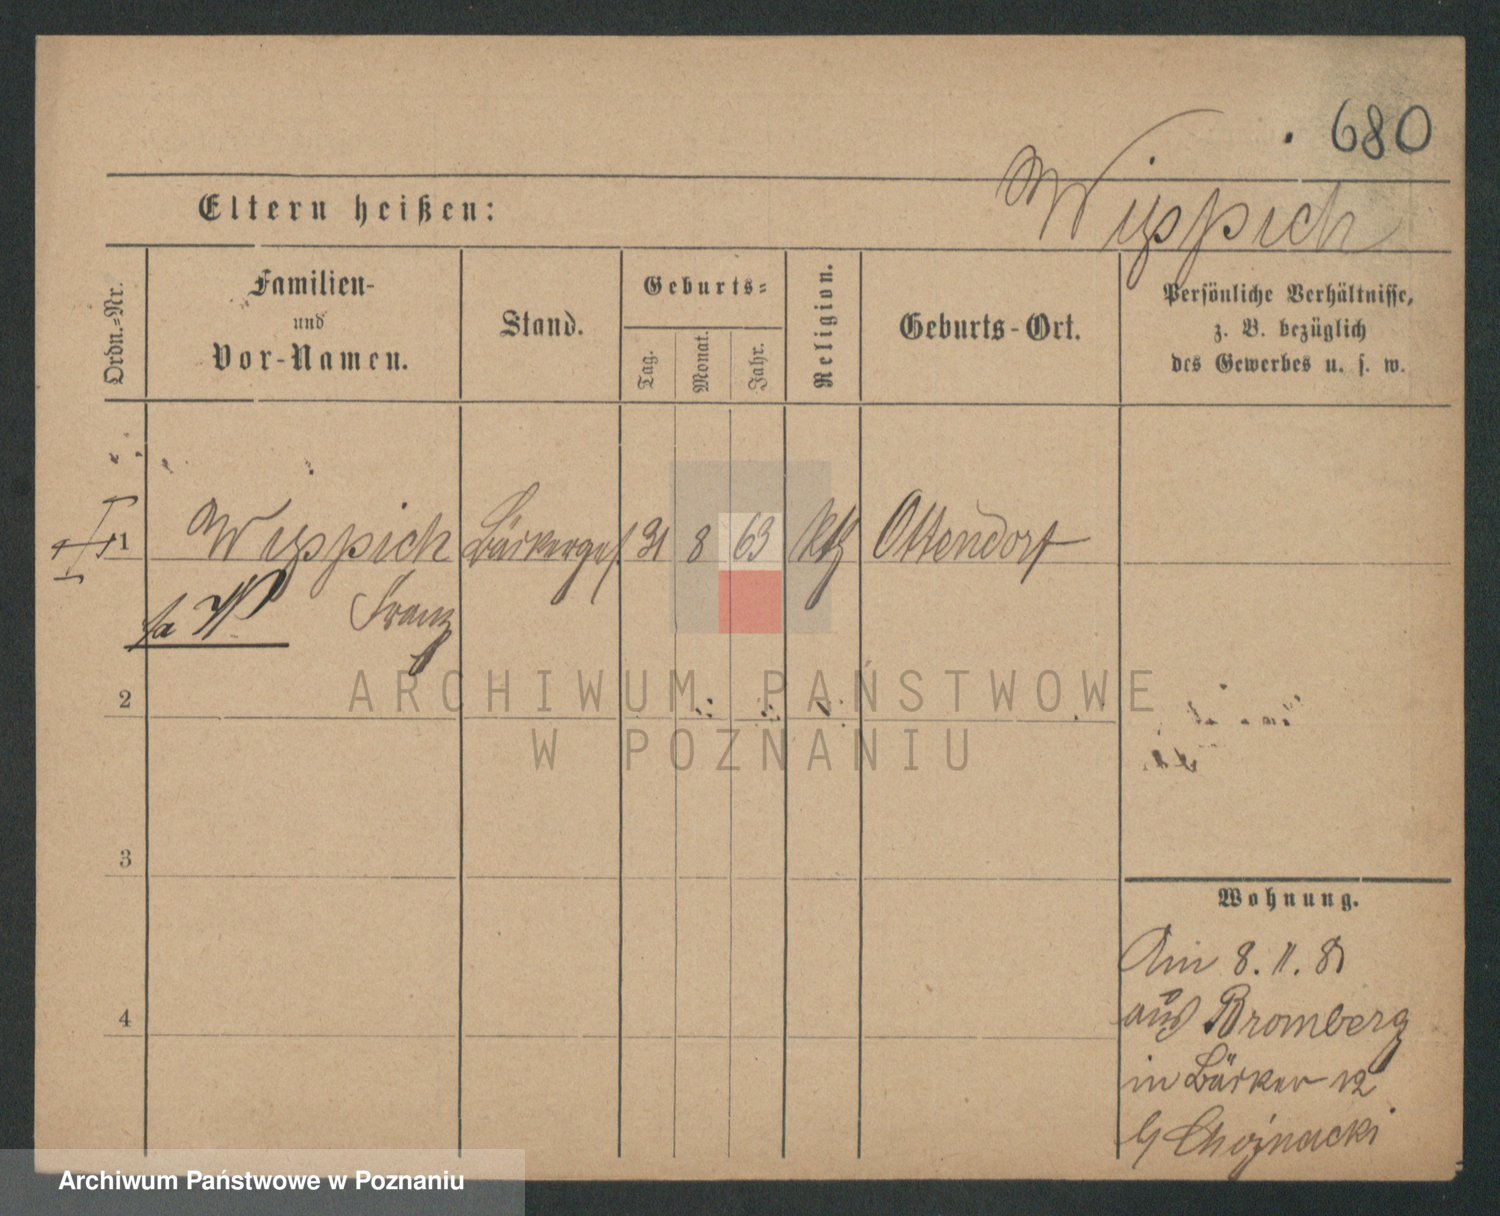 680
Wippich
Eltern heißen:
Ordn.-Nr.
Familien-
und
Vor-Namen.
Stand.
Geburts-
Tag.
Monat.
Jahr.
Religion.
Geburts-Ort.
Persönliche Verhältnisse,
z. B. bezüglich
des Gewerbes u. s. w.
1 Wippich Bäckerges. 31 8 63 kth Ottendorf
Franz
2
3
4
Wohnung.
Am 8. 11. 81
aus Bromberg
in Bäcker 12
b/ Chojnacki
ARCHIWUM PAŃSTWOWE
W POZNANIU
Archiwum Państwowe w Poznaniu